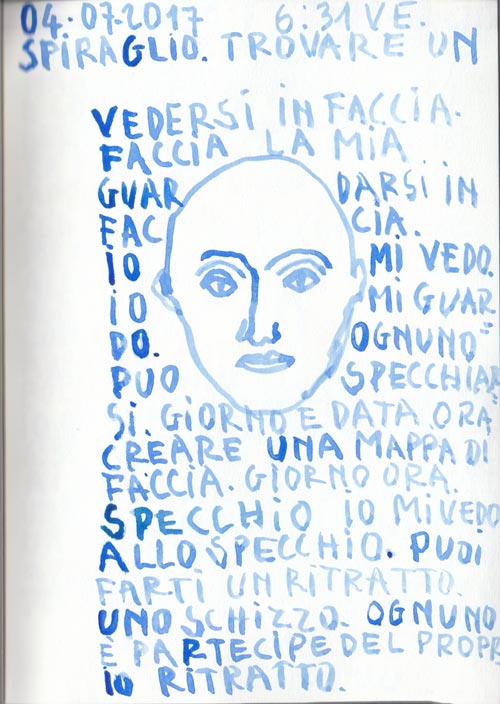 04.07.2017 6:31 VE.
SPIRAGLIO. TROVARE UN
VEDERSI IN FACCIA.
FACCIA LA MIA
GUAR DARSI IN
FAC CIA.
IO MI VEDO.
IO MI GUAR
DO. OGNUNO
PUO SPECCHIAR
SI. GIORNO E DATA ORA
CREARE UNA MAPPA DI
FACCIA. GIORNO ORA.
SPECCHIO IO MI VEDO
ALLO SPECCHIO. PUOI
FARTI UN RITRATTO.
UNO SCHIZZO. OGNUNO
È PARTECIPE DEL PROPR
IO RITRATTO.